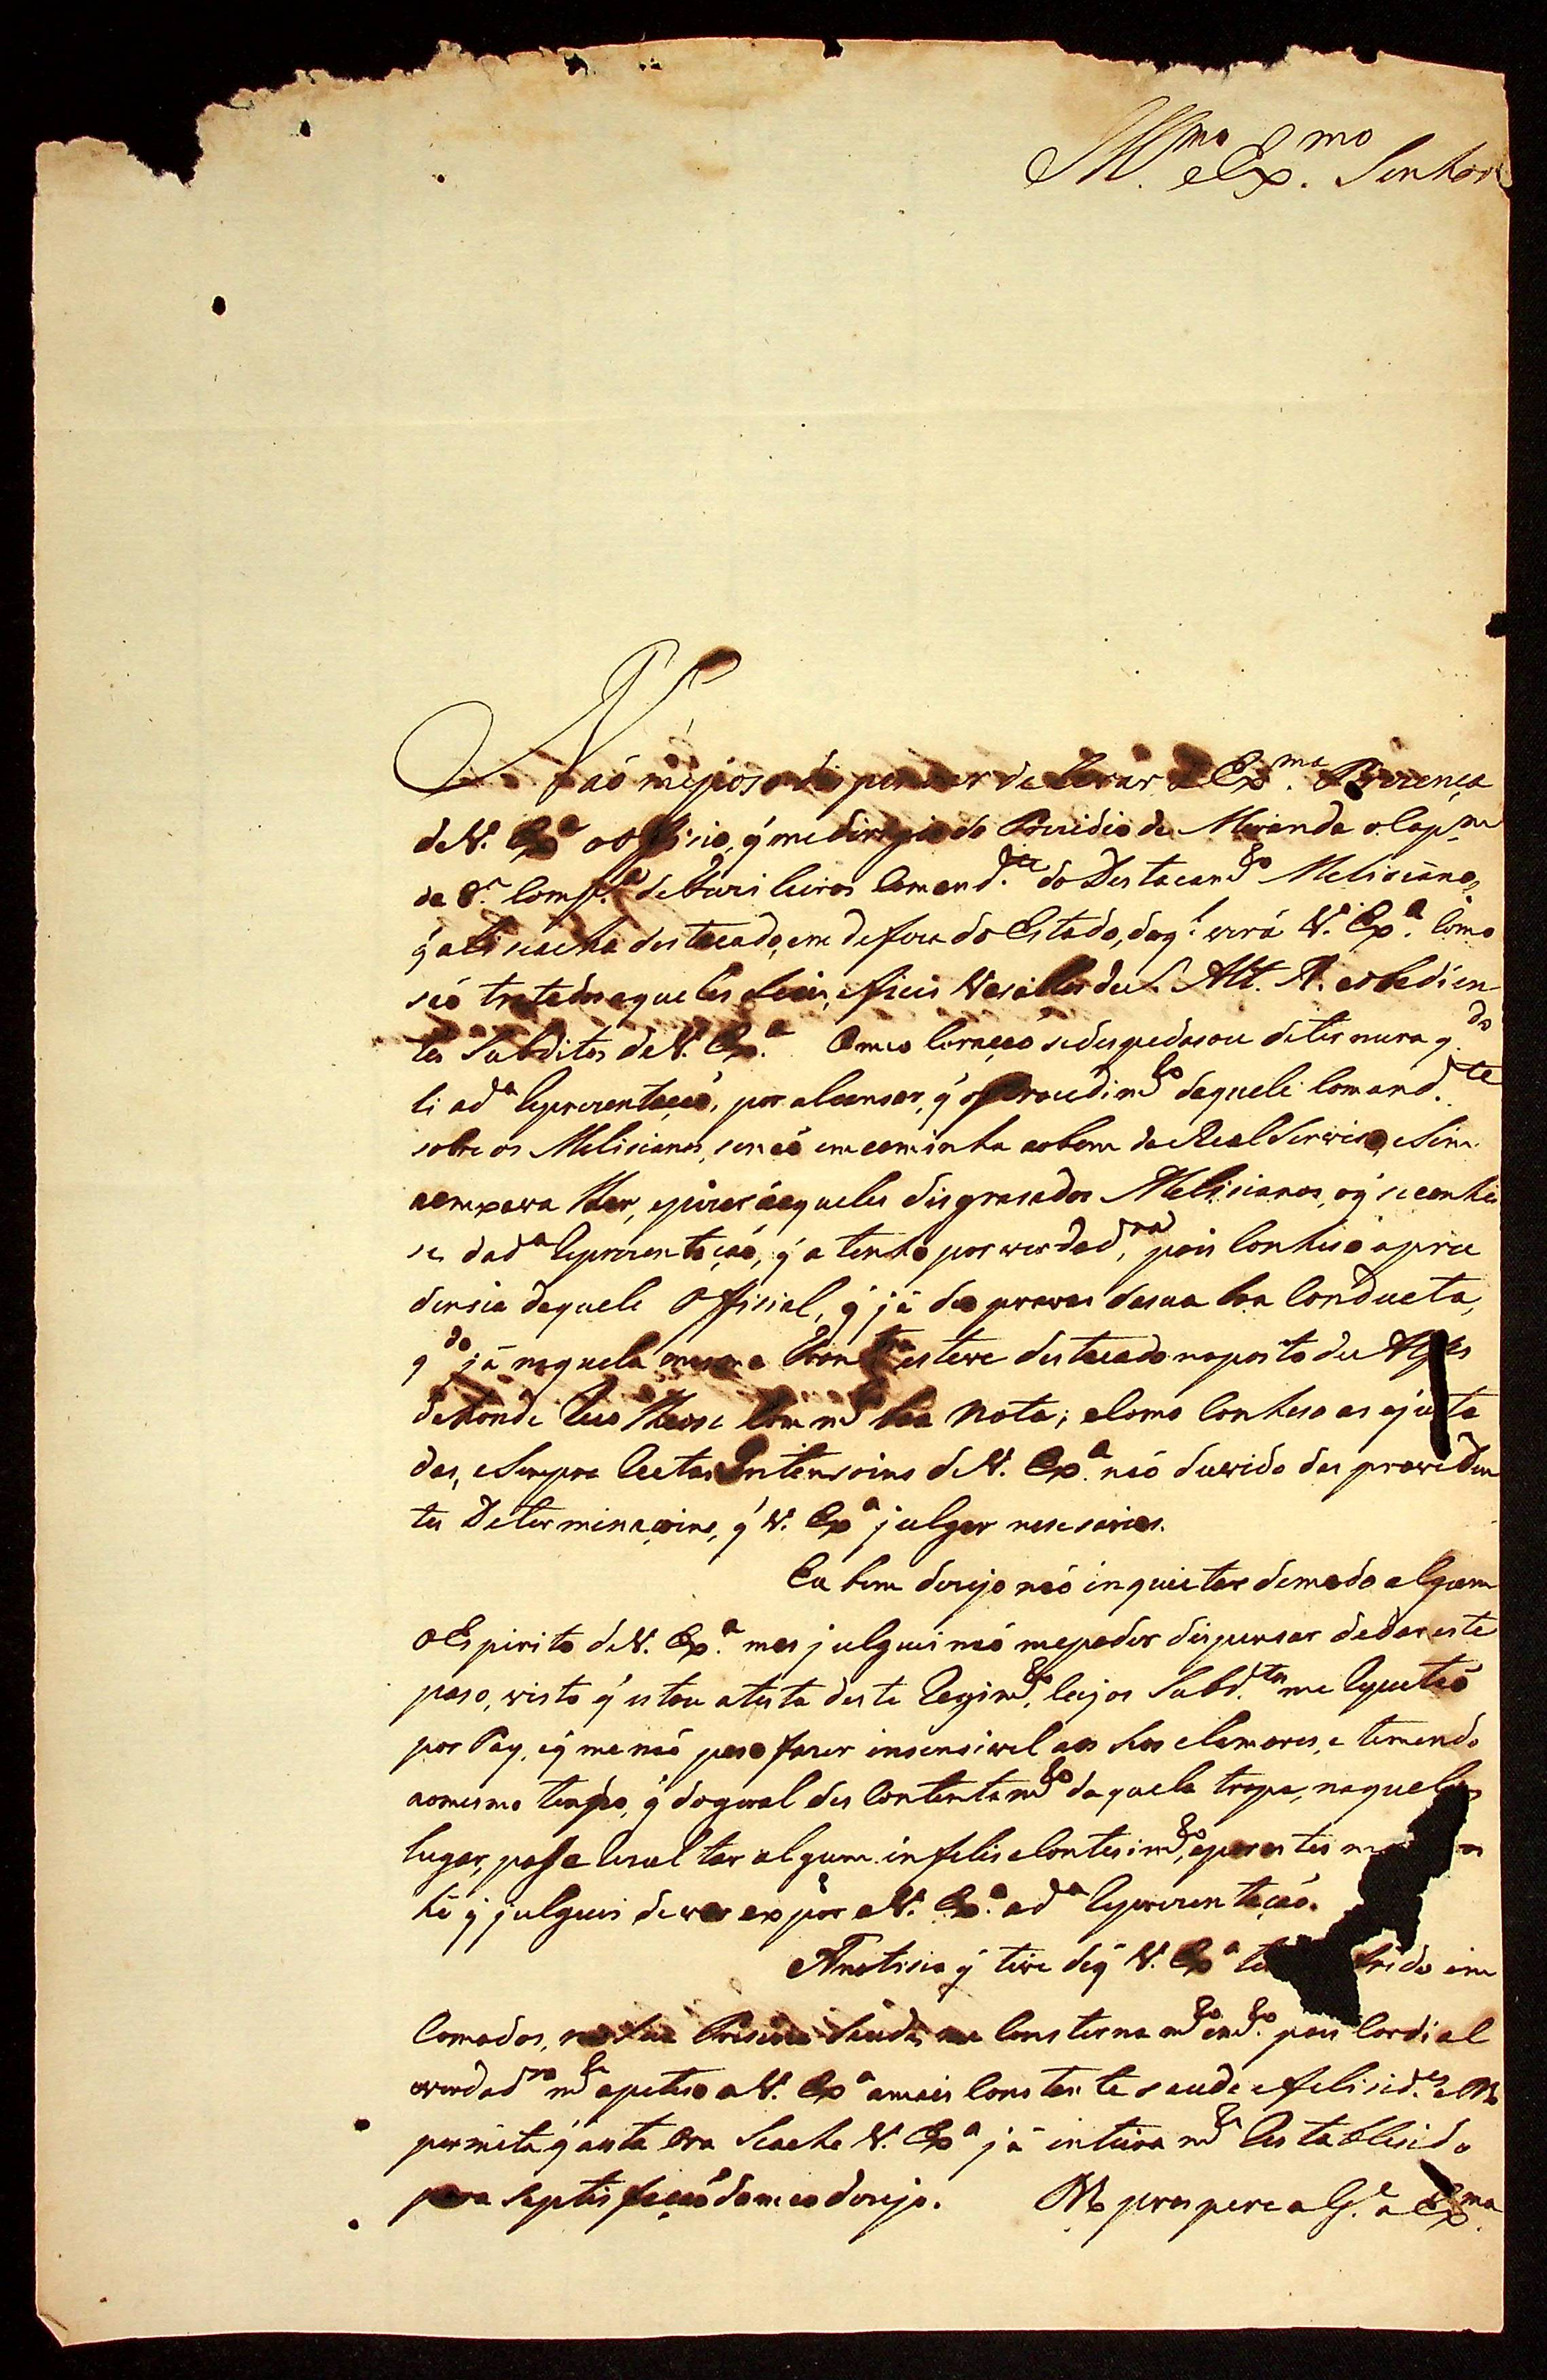 Ill.mo e Ex.mo Senhor
Naó me poso dispensar de levar a Ex.ma Prezença
de V. Ex.a o Offisio, q̃ me dirigio do Prezidio de Miranda o Cap.m
da 8.a Comp.a de Fuzileiros Comand.te do Destacam.to Melisiano,
q̃ ali seacha destacado, em defeza do Estado, do q.l verá V. Ex.a Como
saó tratados aqueles Leais, e fieis Vasállos de S. Alt. R. eobedien
tes Subditos de V. Ex.a O meo Coraçaó sedespedasou de ternura q.do
li a d.a Reprezentaçaó, por alcansar, q̃ o Prosedim.to daquele Comand.te
sobre os Melisianos, senaó emcaminha aobem do Real Serviso, e Sim
aemxova lhar, epizar áaqueles disgrasados Melisianos, oq̃ seconhe
se da d.a Reprezentaçaó, q̃ a tenho por verdad.ra, pois Conheso a pru
densia daquele Offisial, q̃ já deo provas dasua boa Conducta,
q.do já naquela mesma Front.a esteve destacado noposto de Alf.es
dehonde Reco lheose Com m.ta boa Nota; eComo Conheso as ajusta
das, eSempre Rectas Intensoins de V. Ex.a naó duvido das providen
tes Determinaçoins, q̃ V. Ex.a julgar nesesarias.
Eu bem dezejo naó inquietar demodo algum
o Espirito de V. Ex.a mas julguei naó mepoder dispensar dedar este
paso, visto q̃ estou atesta deste Regim.to, Cujos Subd.tos me Reputaó
por Pay, eq̃ me naó poso fazer insensivel aos seos clamores, e temendo
aomesmo tempo, q̃ dogeral des Contentam.to daquela tropa, naquele
lugar, posa Rezultar algum infelis aContesim.to, epor estes
hé q̃ julguei dever expôr a V. Ex.a a d.a Reprezentaçaó.
A notisia q̃ tive deq̃ V. Ex.a te frido in
Comodos, na Sua Presioza Saude, me Consterna m.to em.to pois Cordial
everdad.ra m.te apeteso a V. Ex.a amais Constante saude efelisid.es e D.s
permita q̃ aesta Ora Seache V. Ex.a já inteira m.te Restablesido
para Septisfaçaó domeo dezejo. D.s prospere a G.e a Ex.ma